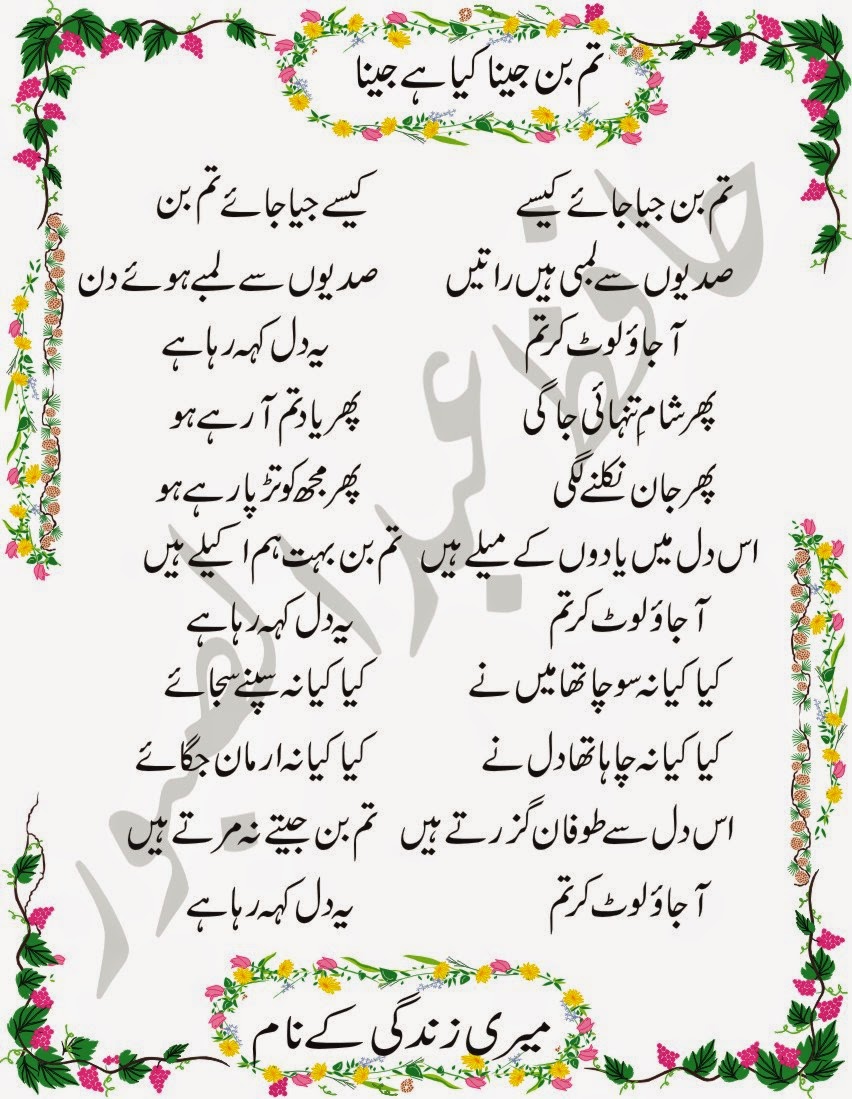 تم بن جینا کیا ہے جینا
تم بن جیا جائے کیسے کیسے جیا جائے تم بن
صدیوں سے لمبی ہیں راتیں صدیوں سے لمبے ہوئے دن
آ جاؤ لوٹ کر تم یہ دل کہہ رہا ہے
پھر شامِ تنہائی جاگی پھر یاد تم آ رہے ہو
پھر جان نکلنے لگی پھر مجھ کو تڑپا رہے ہو
اس دل میں یادوں کے میلے ہیں تم بن بہت ہم اکیلے ہیں
آ جاؤ لوٹ کر تم یہ دل کہہ رہا ہے
کیا کیا نہ سوچا تھا میں نے کیا کیا نہ سپنے سجائے
کیا کیا نہ چاہا تھا دل نے کیا کیا نہ ارمان جگائے
اس دل سے طوفان گزرتے ہیں تم بن جیتے نہ مرتے ہیں
آ جاؤ لوٹ کر تم یہ دل کہہ رہا ہے
میری زندگی کے نام
حافظ عبدالصبور